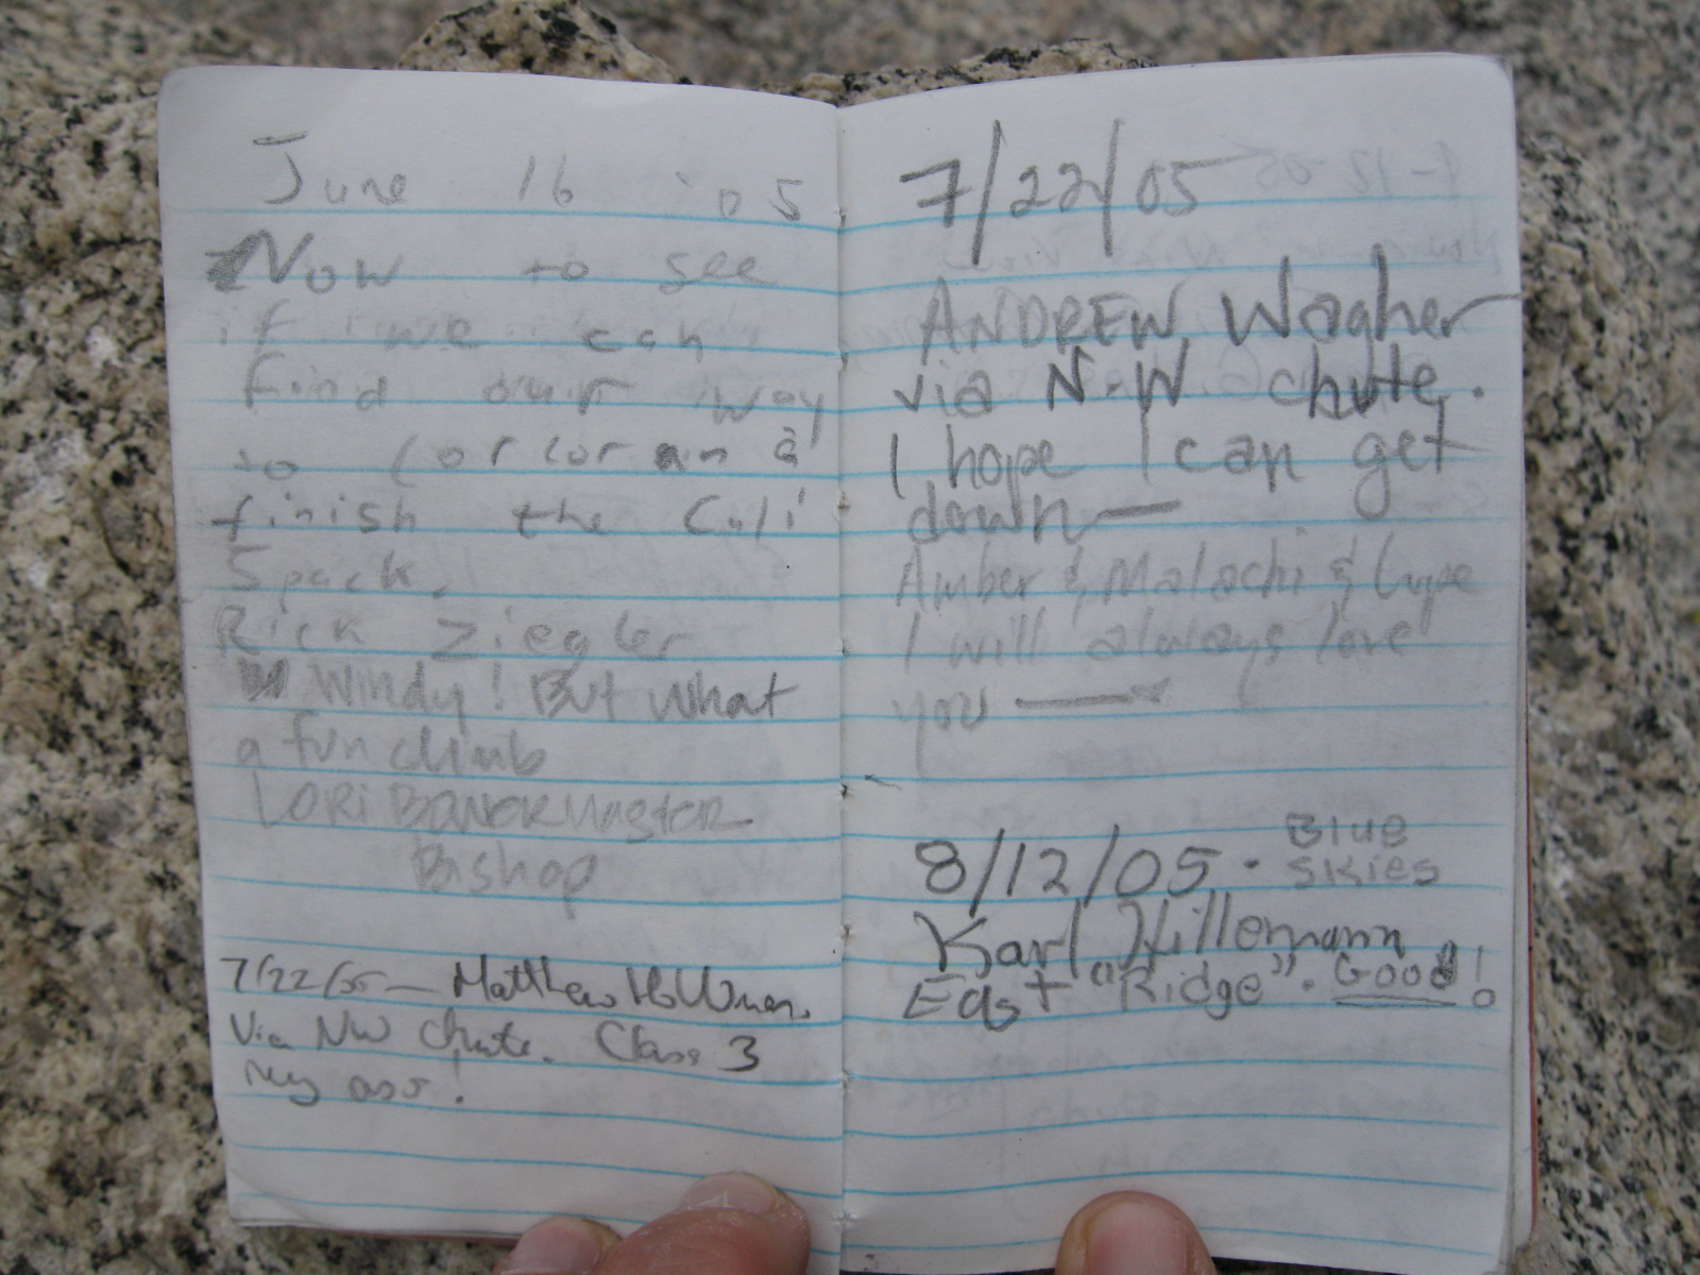 June 16 '05
Now to see
if we can
find our way
to Corcoran &
finish the Cali
5 pack.
Rick Ziegler
Windy! But what
a fun climb
LORI
Bishop
7/22/05 — Matthew Hollman.
Via NW Chute. Class 3
my ass!
7/22/05
ANDREW Wagher
via N.W chute.
I hope I can get
down—
Amber & Malachi &
I will always love
you —
8/12/05 · Blue
skies
Karl Hillemann
East "Ridge". Good!